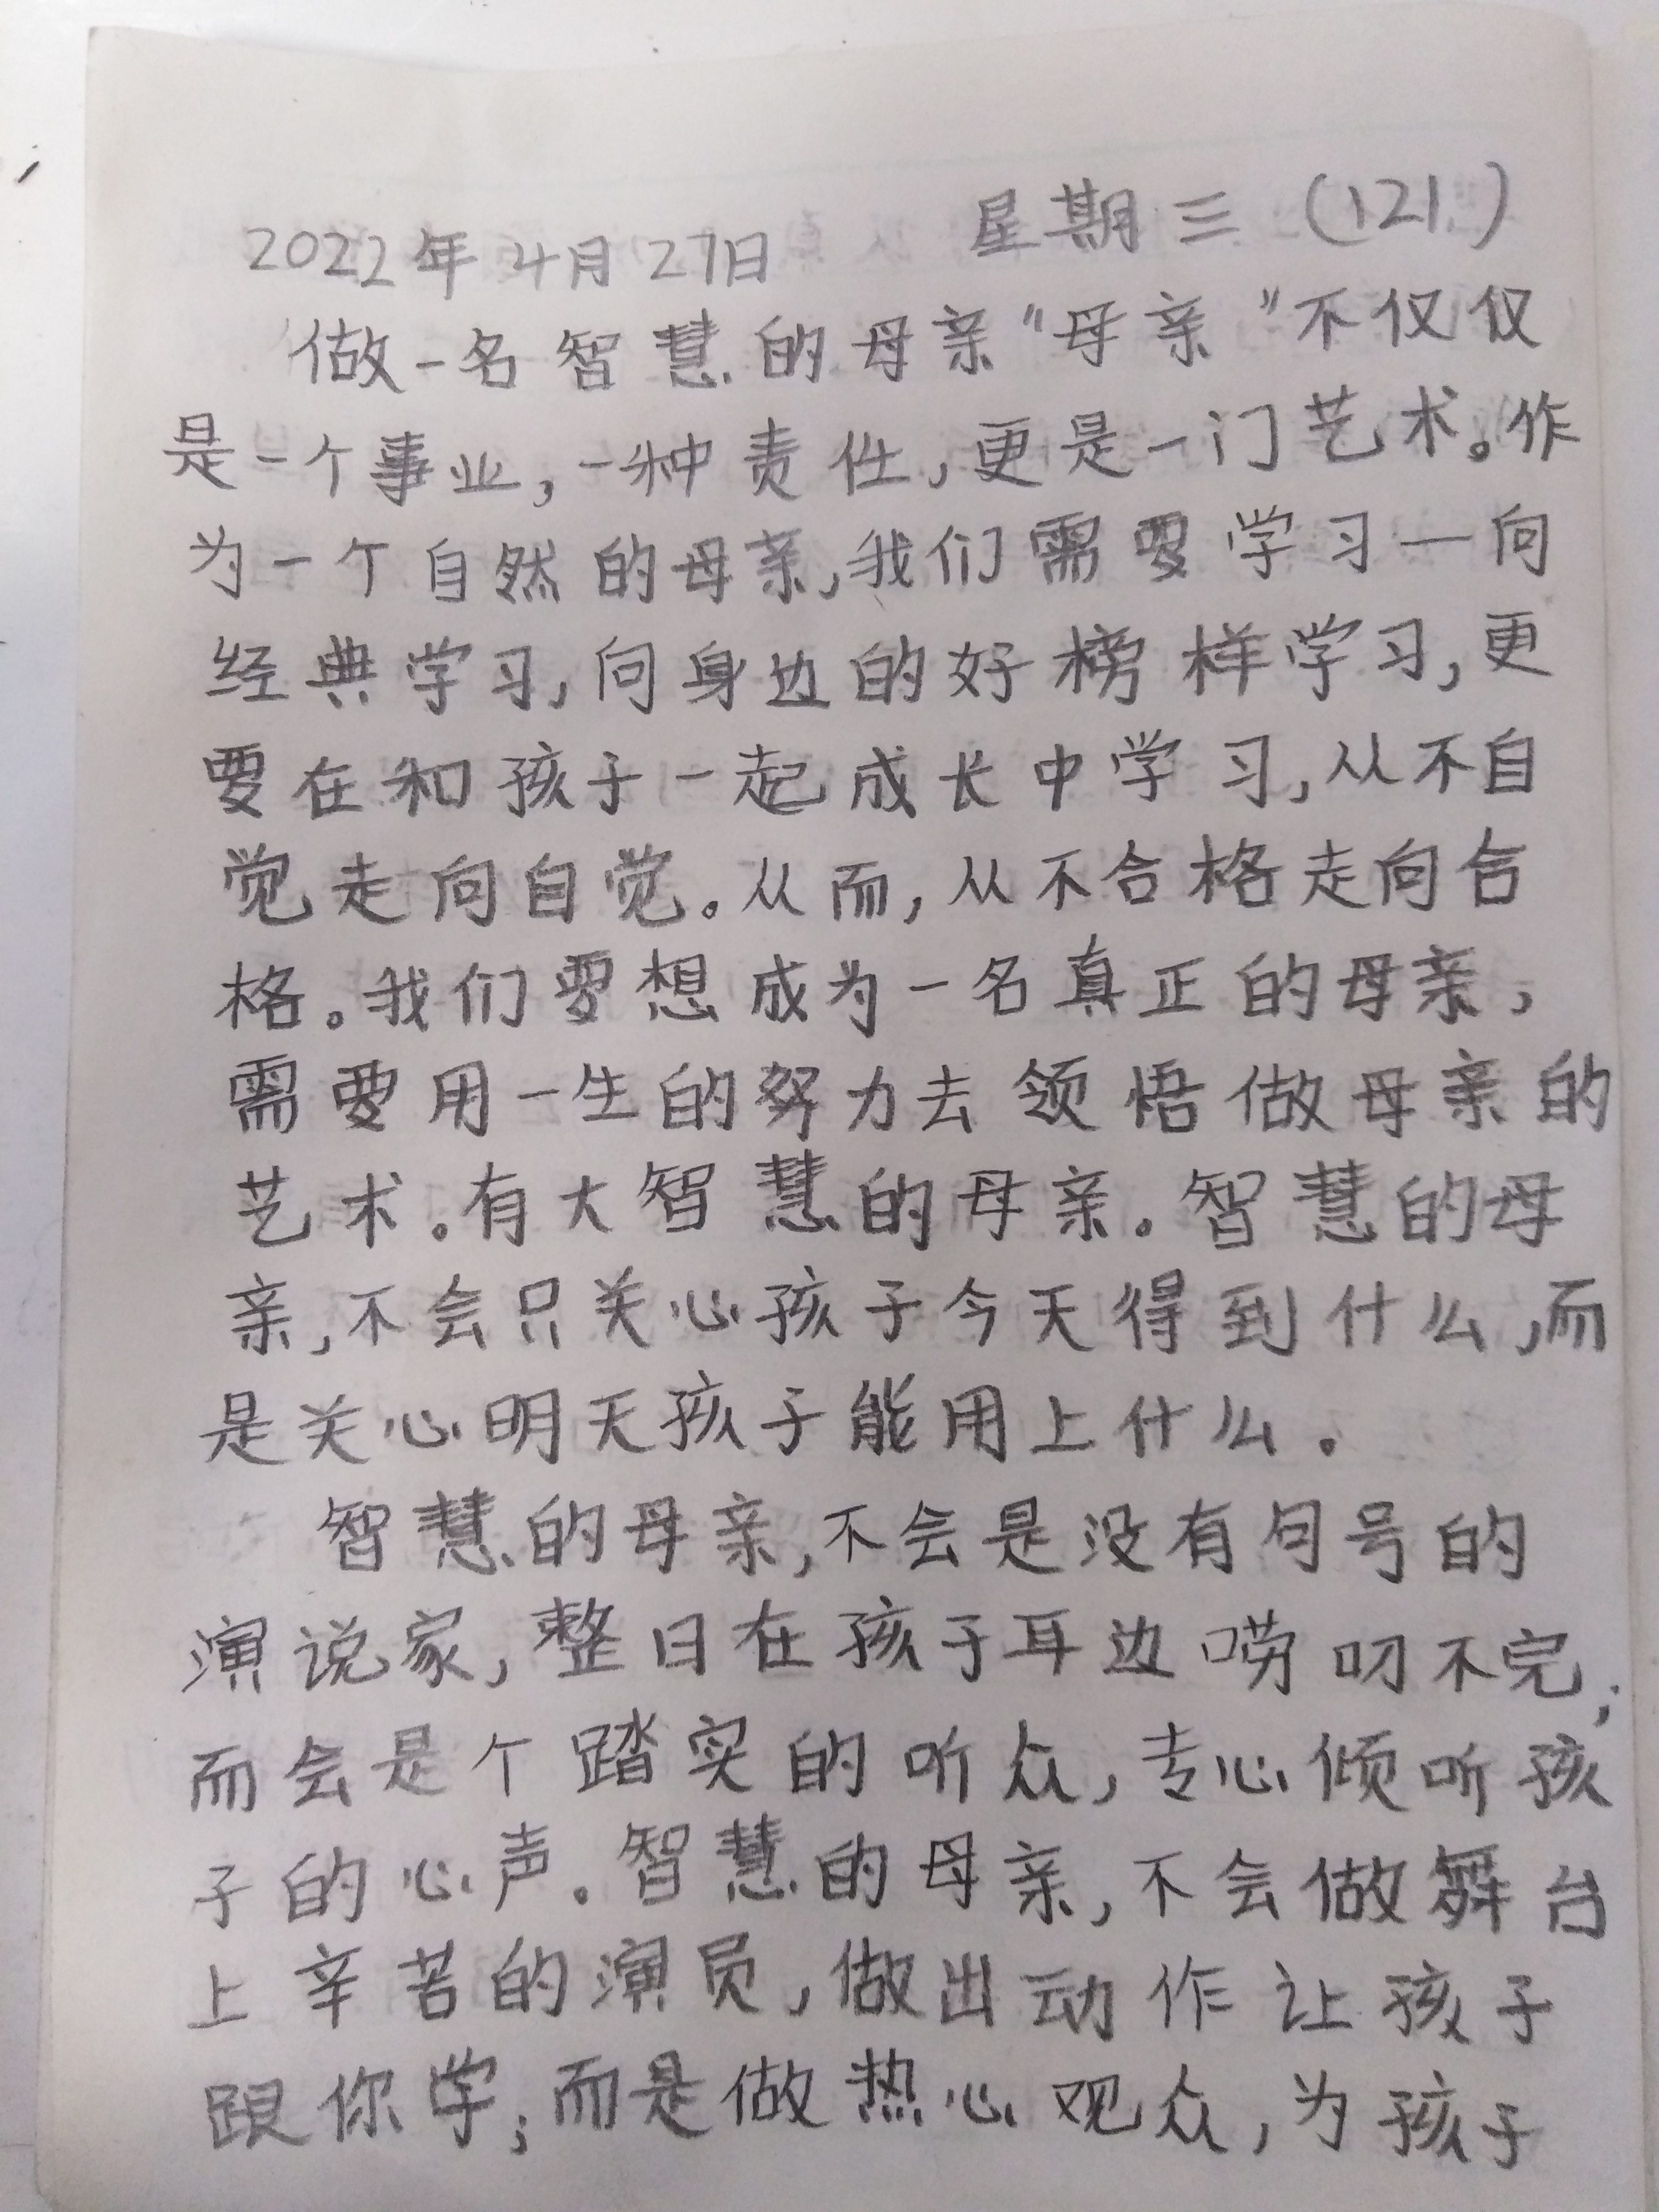 2022年4月27日 星期三(121)
做一名智慧的母亲"母亲"不仅仅
是一个事业,一种责任,更是一门艺术。作
为一个自然的母亲,我们需要学习一向
经典学习,向身边的好榜样学习,更
要在和孩子一起成长中学习,从不自
觉走向自觉。从而,从不合格走向合
格。我们要想成为一名真正的母亲,
需要用一生的努力去领悟做母亲的
艺术。有大智慧的母亲。智慧的母
亲,不会只关心孩子今天得到什么,而
是关心明天孩子能用上什么。
智慧的母亲,不会是没有句号的
演说家,整日在孩子耳边唠叨不完;
而会是个踏实的听众,专心倾听孩
子的心声。智慧的母亲,不会做舞台
上辛苦的演员,做出动作让孩子
跟你学;而是做热心观众,为孩子